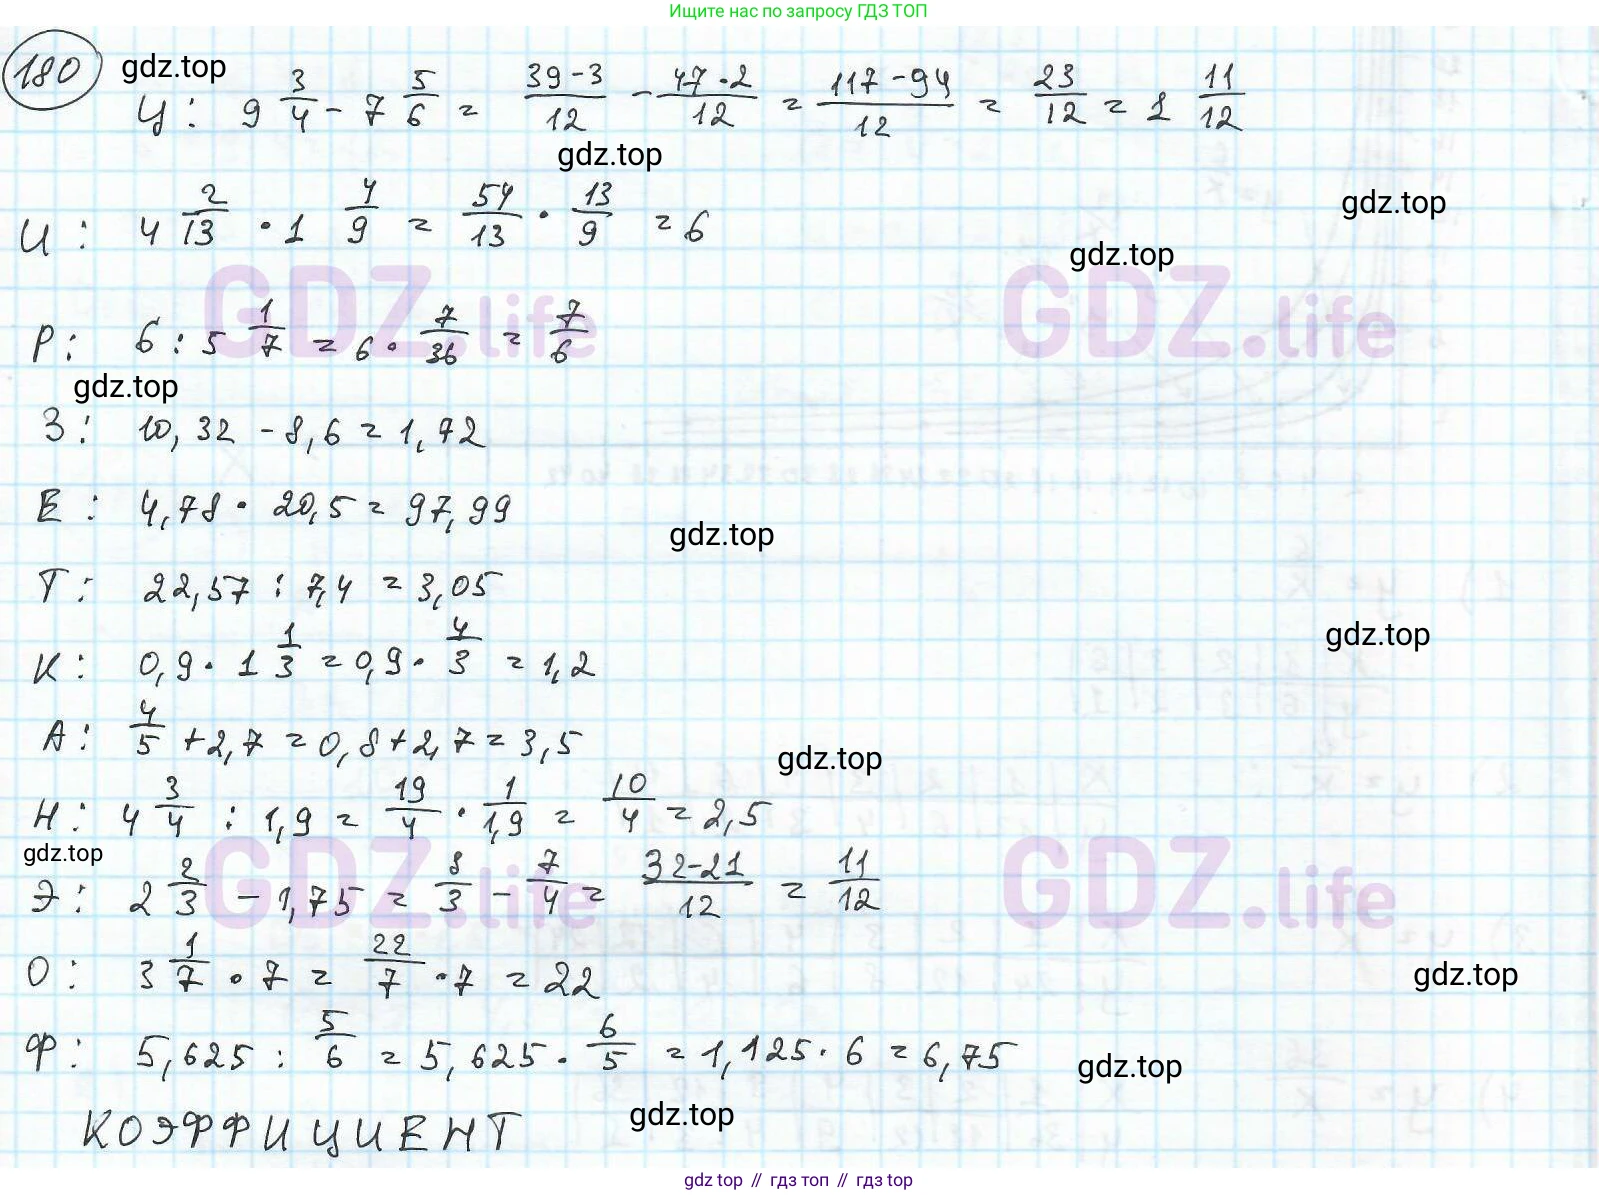 Ищите нас по запросу ГДЗ ТОП
180 gdz.top
Ц: 9 3/4 - 7 5/6 = 39-3/12 - 47·2/12 = 117-94/12 = 23/12 = 1 11/12
gdz.top
gdz.top
И: 4 2/13 · 1 4/9 = 54/13 · 13/9 = 6
gdz.top
GDZ.life GDZ.life
Р: 6 : 5 1/7 = 6 · 7/36 = 7/6
gdz.top
З: 10,32 - 8,6 = 1,72
Е: 4,78 · 20,5 = 97,99
gdz.top
Т: 22,57 : 7,4 = 3,05
gdz.top
К: 0,9 · 1 1/3 = 0,9 · 4/3 = 1,2
А: 4/5 + 2,7 = 0,8 + 2,7 = 3,5
gdz.top
Н: 4 3/4 : 1,9 = 19/4 · 1/1,9 = 10/4 = 2,5
gdz.top
GDZ.life GDZ.life
Э: 2 2/3 - 1,75 = 8/3 - 7/4 = 32-21/12 = 11/12
О: 3 1/7 · 7 = 22/7 · 7 = 22
gdz.top
Ф: 5,625 : 5/6 = 5,625 · 6/5 = 1,125 · 6 = 6,75
gdz.top
КОЭФФИЦИЕНТ
gdz.top
gdz top // гдз топ // gdz top